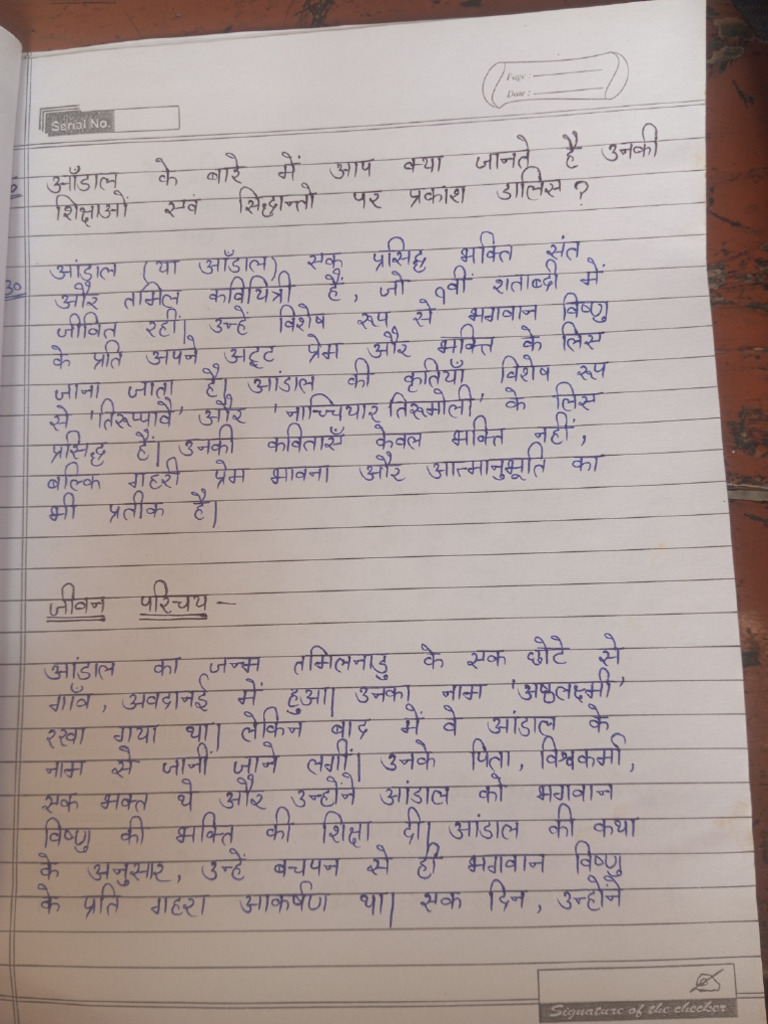 Page :
Date :
Serial No.
आँडाल के बारे में आप क्या जानते है उनकी
शिक्षाओं एवं सिद्धान्तो पर प्रकाश डालिए ?
उ०
आंडाल (या आँडाल) एक प्रसिद्ध भक्ति संत
और तमिल कवियित्री हैं, जो 9वीं शताब्दी में
जीवित रहीं। उन्हें विशेष रूप से भगवान विष्णु
के प्रति अपने अटूट प्रेम और भक्ति के लिए
जाना जाता है। आंडाल की कृतियाँ विशेष रूप
से 'तिरुप्पावै' और 'नाच्चियार तिरुमोली' के लिए
प्रसिद्ध हैं। उनकी कविताएँ केवल भक्ति नहीं,
बल्कि गहरी प्रेम भावना और आत्मानुभूति का
भी प्रतीक है।
जीवन परिचय –
आंडाल का जन्म तमिलनाडु के एक छोटे से
गाँव, अवदानई में हुआ। उनका नाम 'अष्ठलक्ष्मी'
रखा गया था। लेकिन बाद में वे आंडाल के
नाम से जानीं जाने लगीं। उनके पिता, विश्वकर्मा,
एक भक्त थे और उन्होंने आंडाल को भगवान
विष्णु की भक्ति की शिक्षा दी। आंडाल की कथा
के अनुसार, उन्हें बचपन से ही भगवान विष्णु
के प्रति गहरा आकर्षण था। एक दिन, उन्होंने
Signature of the checker